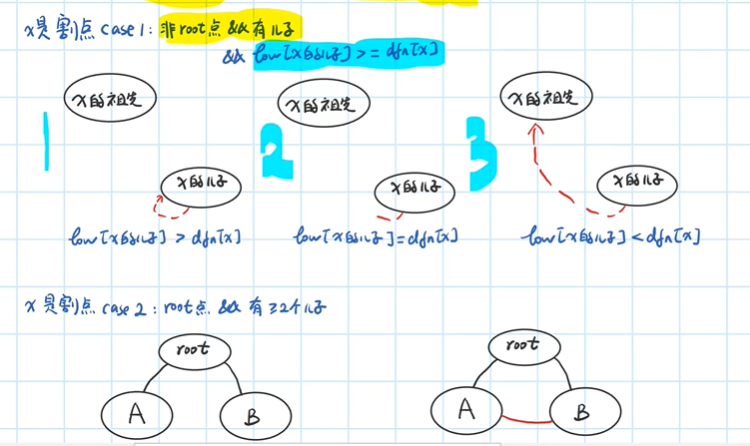 x是割点 case 1: 非root点 && 有儿子
&& low[x的儿子] >= dfn[x]
1
x的祖先
x的儿子
low[x的儿子] > dfn[x]
2
x的祖先
x的儿子
low[x的儿子] = dfn[x]
3
x的祖先
x的儿子
low[x的儿子] < dfn[x]
x是割点 case 2: root点 && 有≥2个儿子
root
A
B
root
A
B